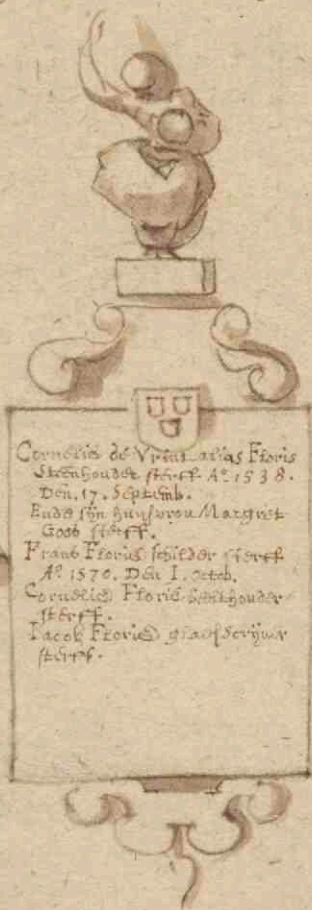 Cornelis de Vrint alias Floris
Steenhouder sterff A° 1538.
Den. 17. Septemb.
Ende sijn huijsvrou Margriet
Goos sterff.
Frans Floris schilder sterff
A° 1570. Den 1. octob.
Cornelis Floris beelthouder
sterff.
Iacob Floris glaesscrijver
sterff.